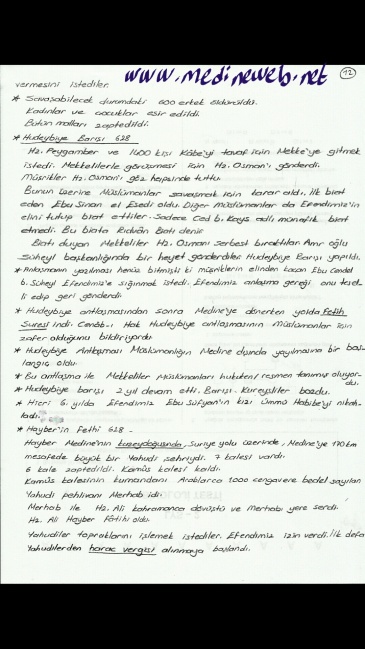 www.medineweb.net
12
vermesini istediler.
* Savaşabilecek durumdaki 600 erkek öldürüldü.
Kadınlar ve çocuklar esir edildi.
Bütün malları zaptedildi.
* Hudeybiye Barışı 628
Hz. Peygamber ve 1400 kişi Kâbe'yi tavaf için Mekke'ye gitmek
istedi. Mekkelilerle görüşmesi için Hz. Osman'ı gönderdi.
Müşrikler Hz. Osman'ı göz hapsinde tuttu.
Bunun üzerine Müslümanlar savaşmak için karar aldı. İlk biat
eden Ebu Sinan el Esedi oldu. Diğer Müslümanlar da Efendimiz'in
elini tutup biat ettiler. Sadece Ced b. Kays adlı münafık biat
etmedi. Bu biata Rıdvan Biatı denir
Biatı duyan Mekkeliler Hz. Osmanı serbest bıraktılar. Amr oğlu
Süheyl başkanlığında bir heyet gönderdiler. Hudeybiye Barışı yapıldı.
* Anlaşmanın yazılması henüz bitmişti ki müşriklerin elinden kaçan Ebu Cendel
b. Süheyl Efendimiz'e sığınmak istedi. Efendimiz anlaşma gereği onu tesl-
i edip geri gönderdi
* Hudeybiye antlaşmasından sonra Medine'ye dönerken yolda Fetih
Suresi indi. Cenab-ı Hak Hudeybiye antlaşmasının Müslümanlar için
zafer olduğunu bildiriyordu
* Hudeybiye Antlaşması Müslümanlığın Medine dışında yayılmasına bir baş-
langıç oldu.
* Bu antlaşma ile Mekkeliler Müslümanları hukuken resmen tanımış oluyor-
du.
* Hudeybiye barışı 2 yıl devam etti. Barışı Kureyşliler bozdu.
* Hicri 6. yılda Efendimiz Ebu Süfyan'ın kızı Ümmü Habibe'yi nikah-
ladı.
* Hayber'in Fethi 628 -
Hayber Medine'nin kuzeydoğusunda, Suriye yolu üzerinde, Medine'ye 170 km
mesafede büyük bir Yahudi şehriydi. 7 kalesi vardı.
6 kale zaptedildi. Kamûs kalesi kaldı.
Kamûs kalesinin kumandanı Araplarca 1000 cengavere bedel sayılan
Yahudi pehlivanı Merhab idi.
Merhab ile Hz. Ali kahramanca dövüştü ve Merhabı yere serdi.
Hz. Ali Hayber Fâtihi oldu.
Yahudiler topraklarını işlemek istediler. Efendimiz izin verdi. İlk defa
Yahudilerden haraç vergisi alınmaya başlandı.